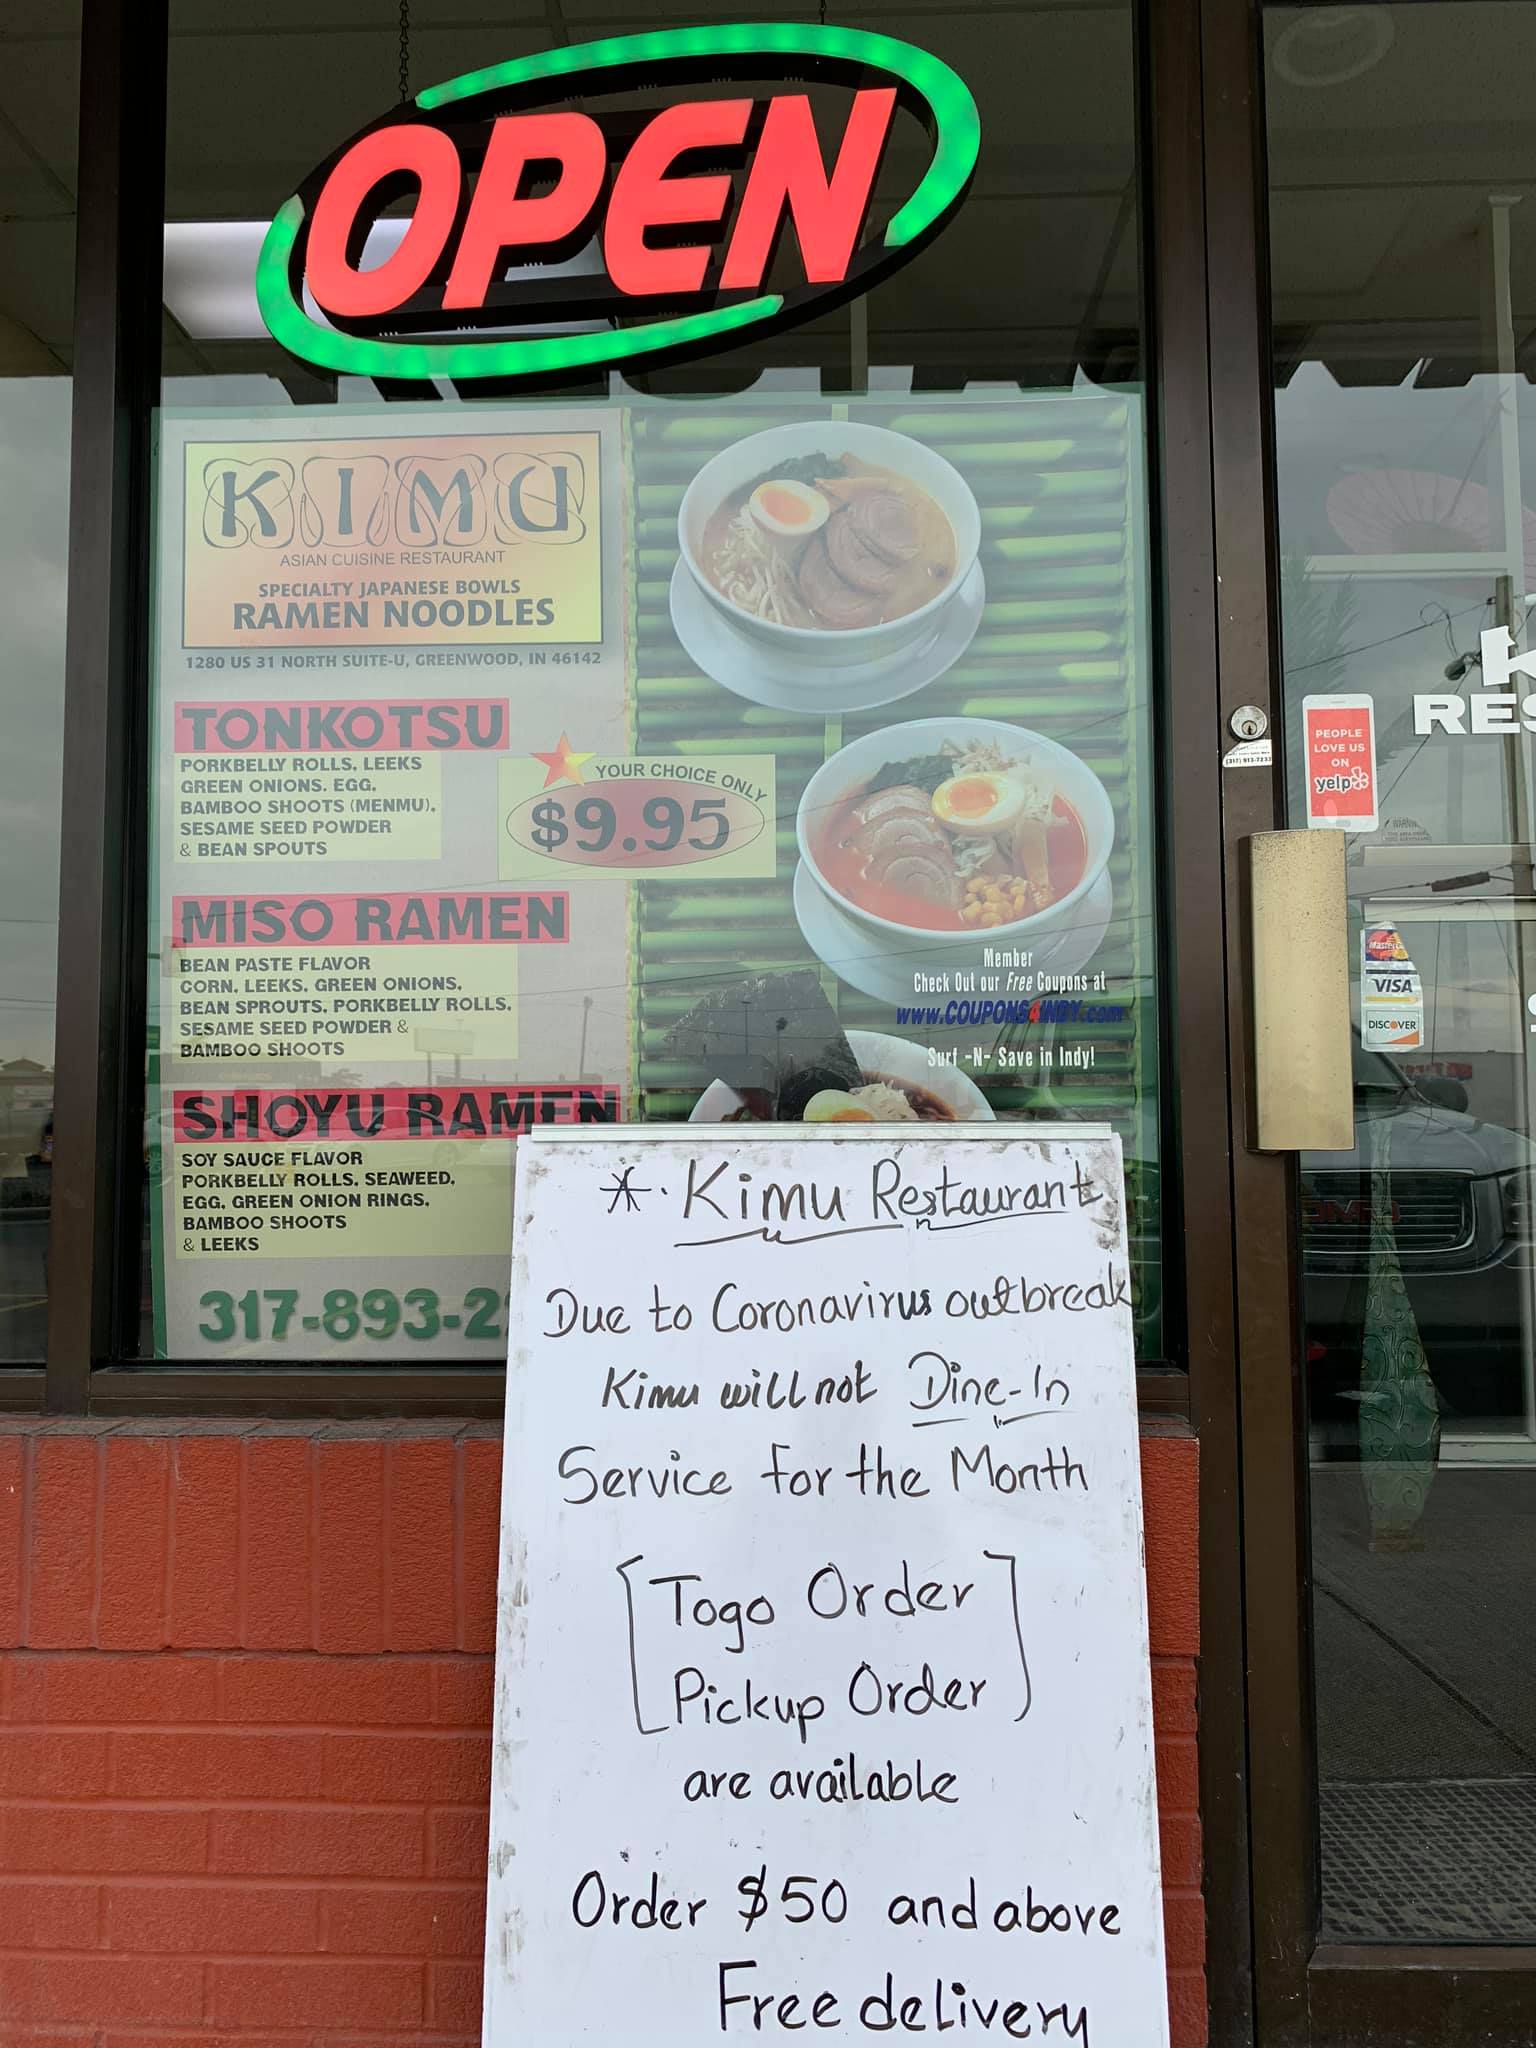 OPEN
KIMU
ASIAN CUISINE RESTAURANT
SPECIALTY JAPANESE BOWLS
RAMEN NOODLES
1280 US 31 NORTH SUITE-U, GREENWOOD, IN 46142
TONKOTSU
PORKBELLY ROLLS, LEEKS
GREEN ONIONS, EGG,
BAMBOO SHOOTS (MENMU),
SESAME SEED POWDER
& BEAN SPOUTS
YOUR CHOICE ONLY
$9.95
MISO RAMEN
BEAN PASTE FLAVOR
CORN, LEEKS, GREEN ONIONS,
BEAN SPROUTS, PORKBELLY ROLLS,
SESAME SEED POWDER &
BAMBOO SHOOTS
SHOYU RAMEN
SOY SAUCE FLAVOR
PORKBELLY ROLLS, SEAWEED,
EGG, GREEN ONION RINGS,
BAMBOO SHOOTS
& LEEKS
317-893-2
Member
Check Out our Free Coupons at
www.COUPONS4INDY.com
Surf -N- Save in Indy!
K
RES
PEOPLE
LOVE US
ON
yelp
(317) 913-7233
MasterC
VISA
DISCOVER
GMC
*. Kimu Restaurant
Due to Coronavirus outbreak
Kimu will not Dine-In
Service for the Month
[Togo Order
Pickup Order]
are available
Order $50 and above
Free delivery